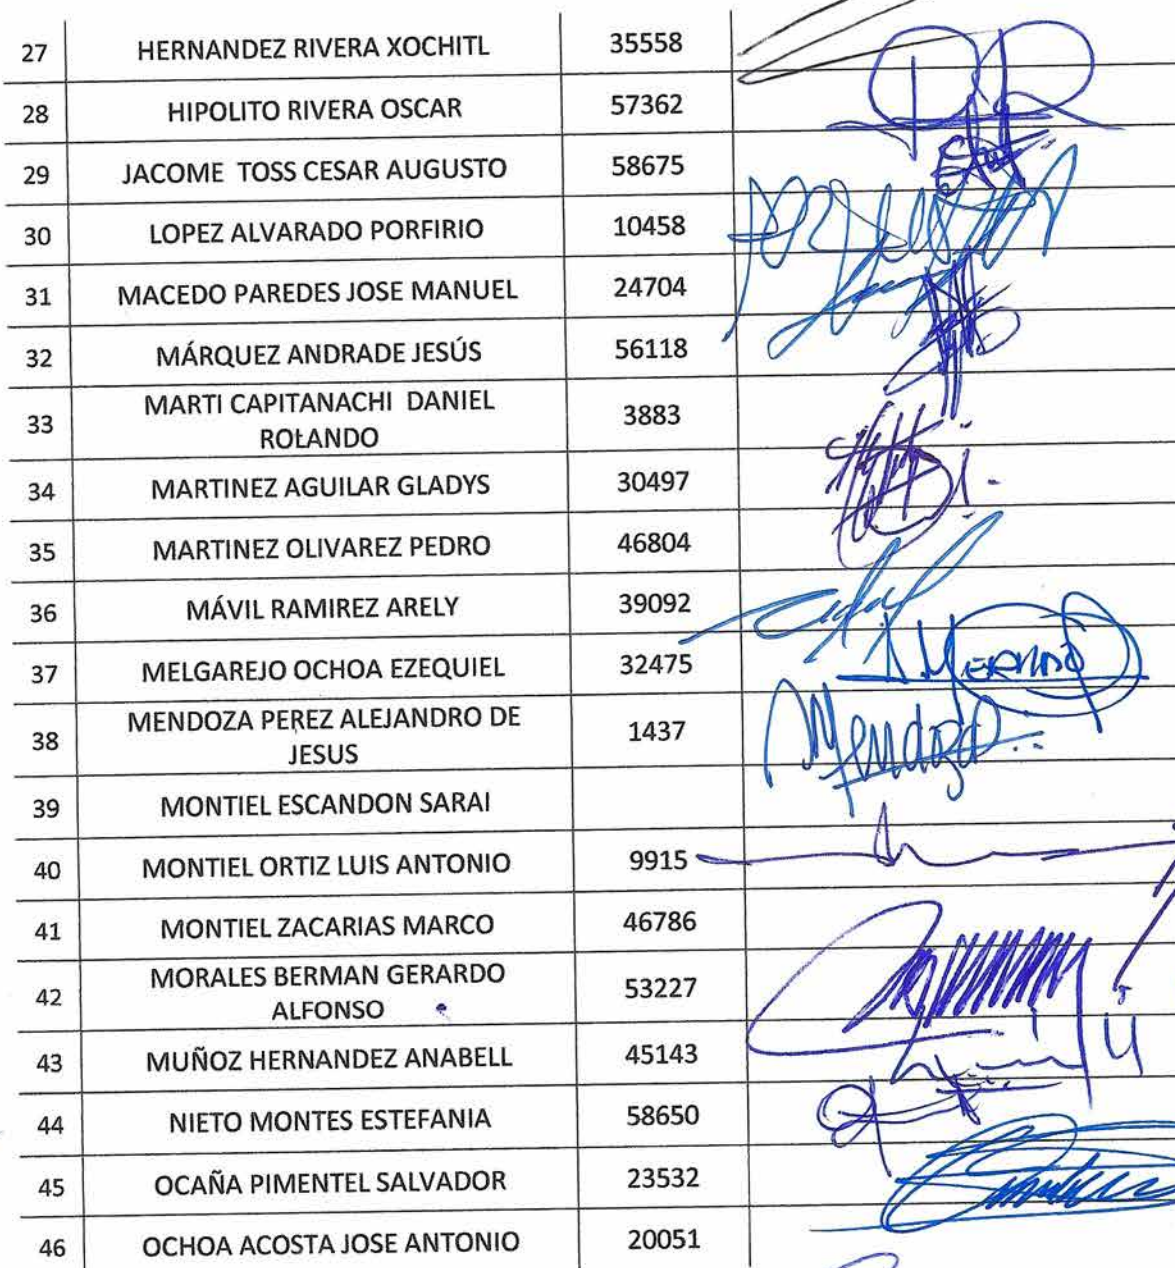 27 HERNANDEZ RIVERA XOCHITL 35558
28 HIPOLITO RIVERA OSCAR 57362
29 JACOME TOSS CESAR AUGUSTO 58675
30 LOPEZ ALVARADO PORFIRIO 10458
31 MACEDO PAREDES JOSE MANUEL 24704
32 MÁRQUEZ ANDRADE JESÚS 56118
33 MARTI CAPITANACHI DANIEL 3883
ROLANDO
34 MARTINEZ AGUILAR GLADYS 30497
35 MARTINEZ OLIVAREZ PEDRO 46804
36 MÁVIL RAMIREZ ARELY 39092
37 MELGAREJO OCHOA EZEQUIEL 32475
38 MENDOZA PEREZ ALEJANDRO DE 1437 Mendoza
JESUS
39 MONTIEL ESCANDON SARAI
40 MONTIEL ORTIZ LUIS ANTONIO 9915
41 MONTIEL ZACARIAS MARCO 46786
42 MORALES BERMAN GERARDO 53227
ALFONSO
43 MUÑOZ HERNANDEZ ANABELL 45143
44 NIETO MONTES ESTEFANIA 58650
45 OCAÑA PIMENTEL SALVADOR 23532
46 OCHOA ACOSTA JOSE ANTONIO 20051